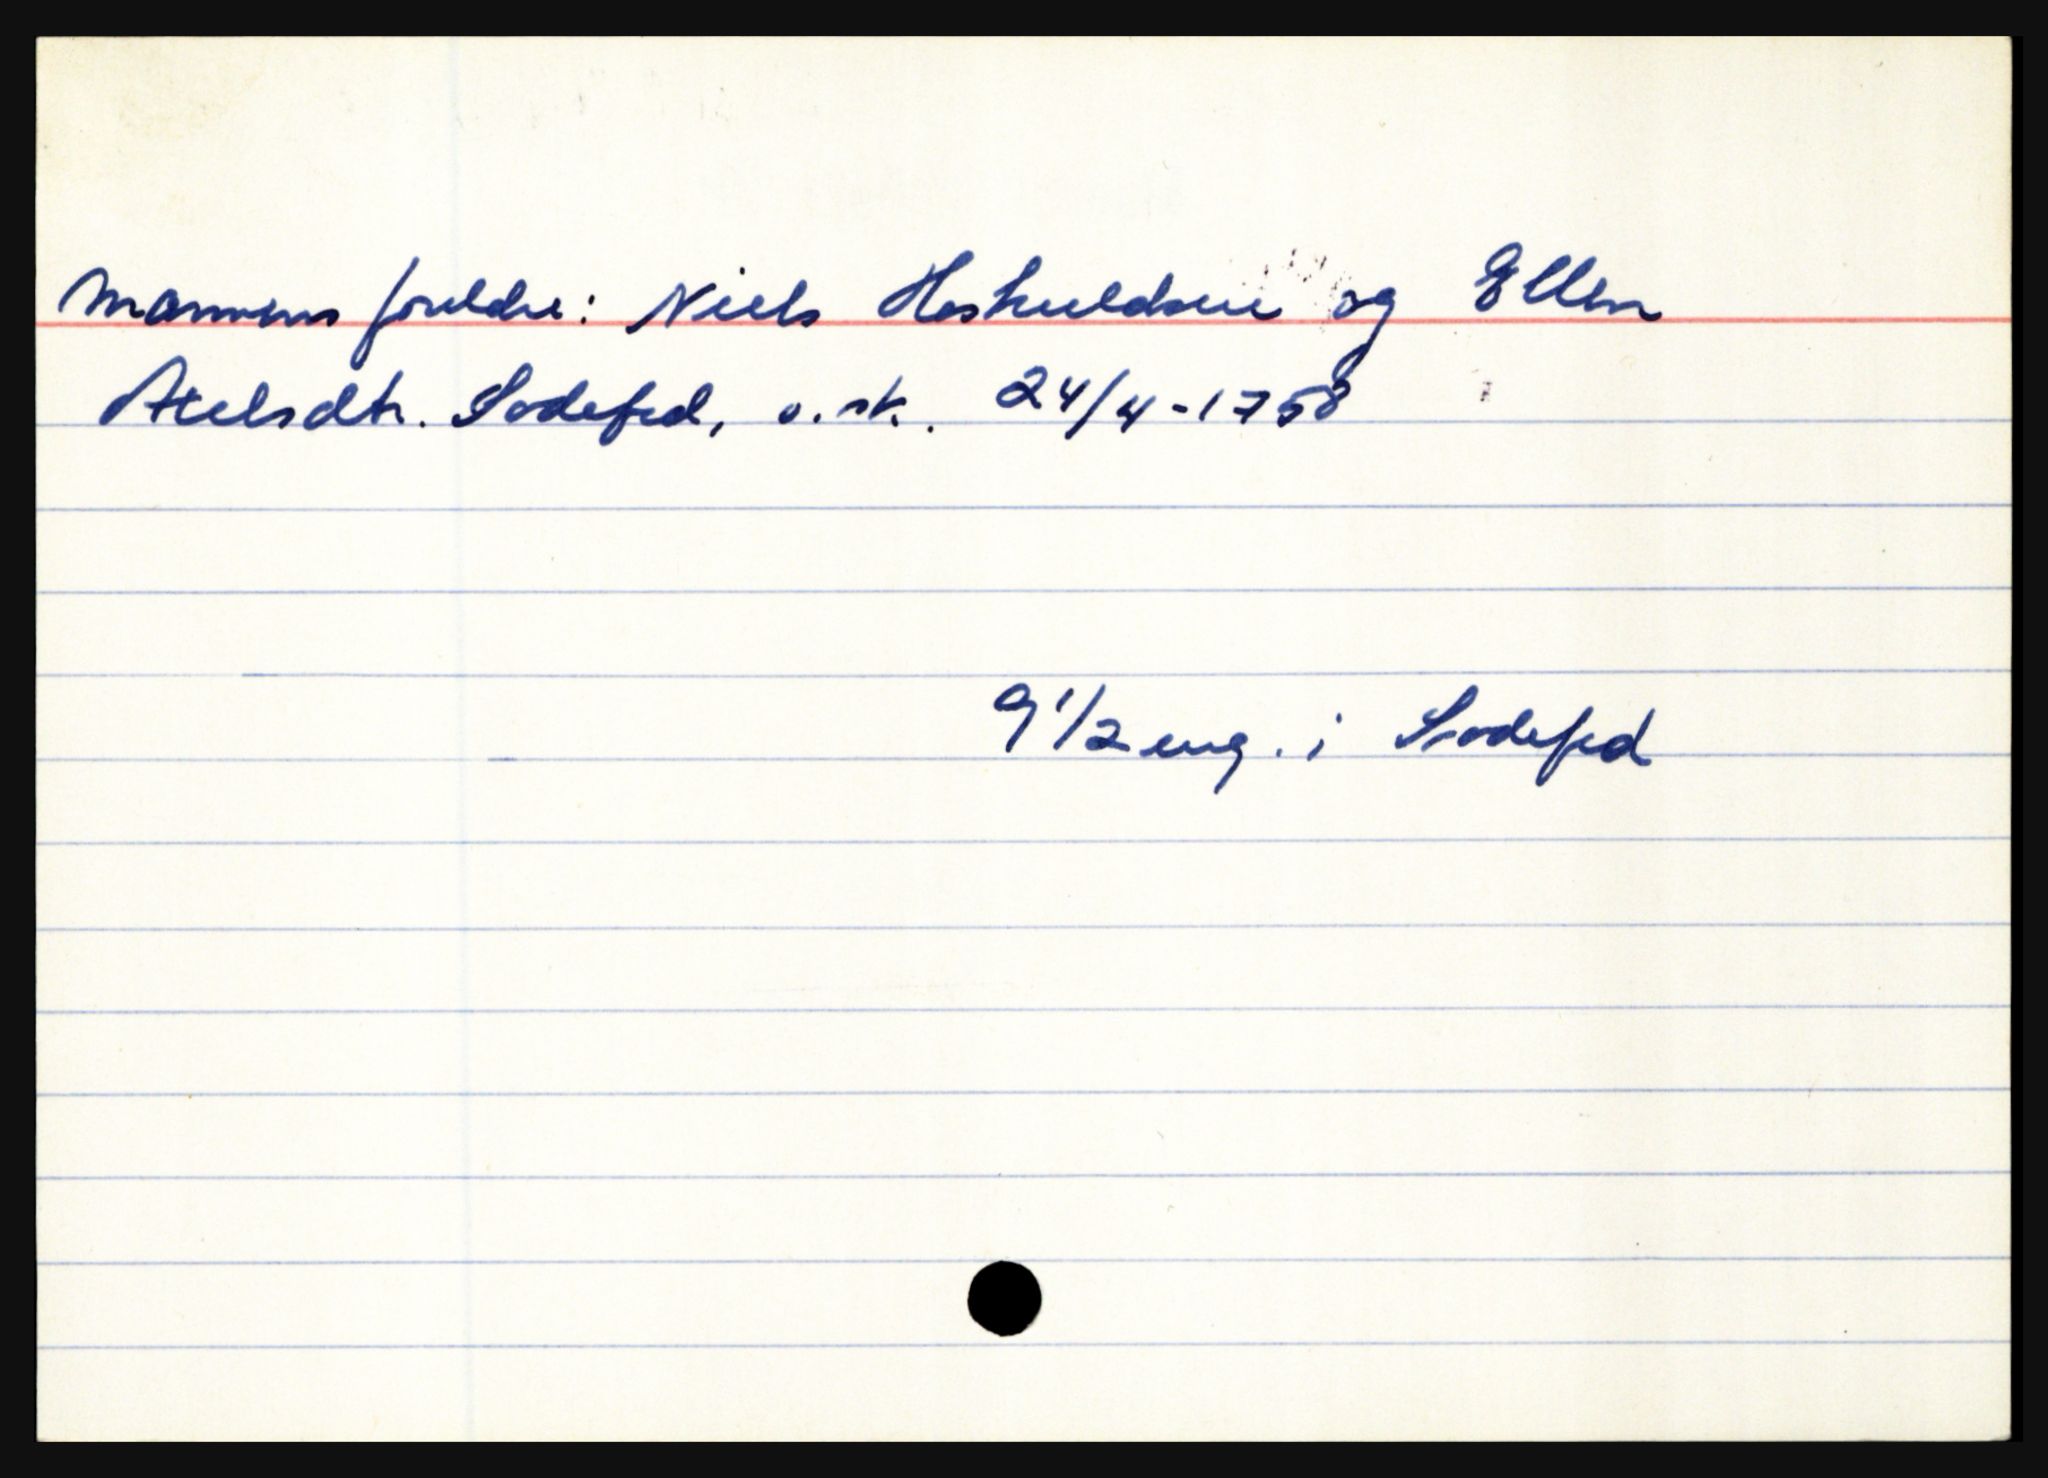 Mannens foreldre: Niels Hoskuldsen og Ellen
Axelsdtr. Sodefjed, o.sk. 24/4-1758
9 1/2 eng. i Sodefjed